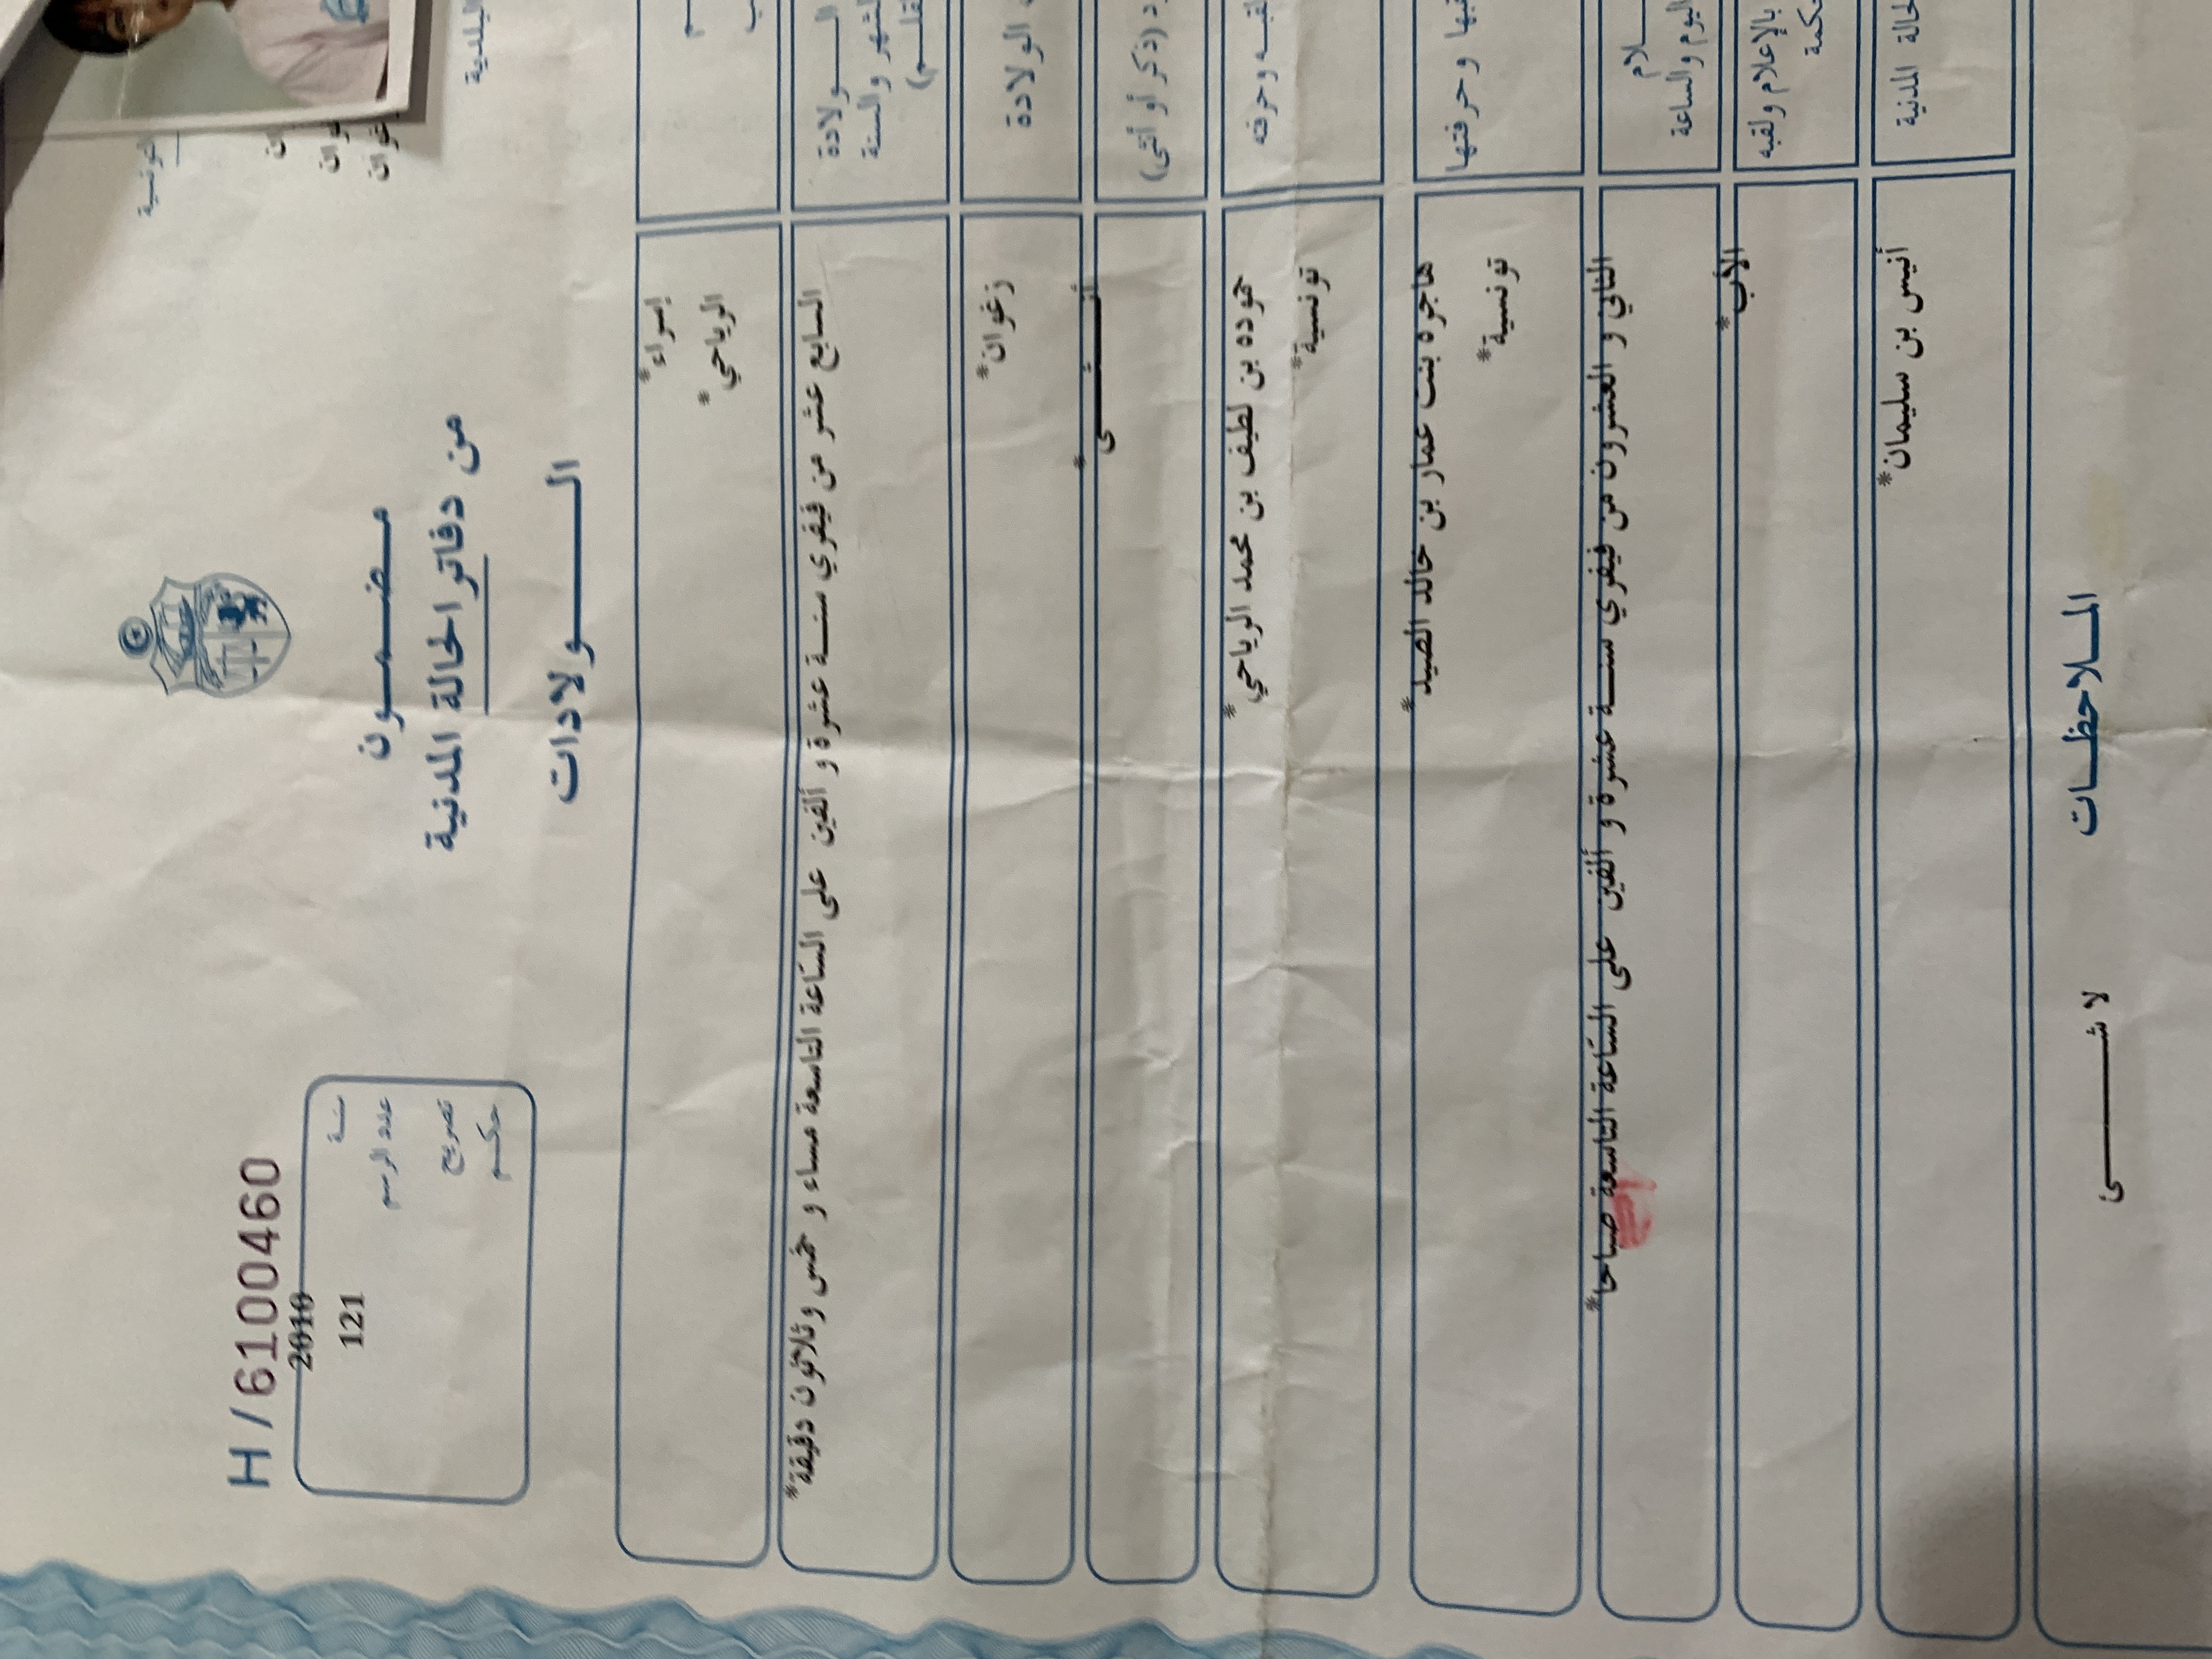 H / 6100460
2010
121
سنة
عدد الرسم
تصريح
حكم
مضمون
من دفاتر الحالة المدنية
الولادات
إسراء*
الرياحي*
الولادة
السابع عشر من فيفري سنة عشرة و ألفين على الساعة التاسعة مساء و خمس وثلاثون دقيقة*
الولادة
زغوان*
(ذكر أو أنثى)
أنثى*
وحرفته
حموده بن لطيف بن محمد الرياحي*
تونسية*
وحرفتها
هاجره بنت عمار بن خالد الصيد*
تونسية*
اليوم والساعة
الثاني و العشرون من فيفري سنة عشرة و ألفين على الساعة التاسعة صباحا*
بالإعلام ولقبه
الأب*
المدنية
أنيس بن سليمان*
الملاحظات
لا شىء